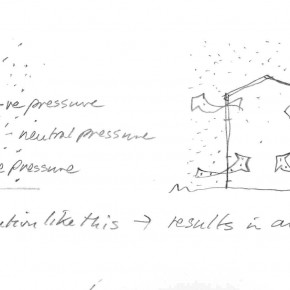 -ve pressure
- neutral pressure
e pressure
ution like this → results in an